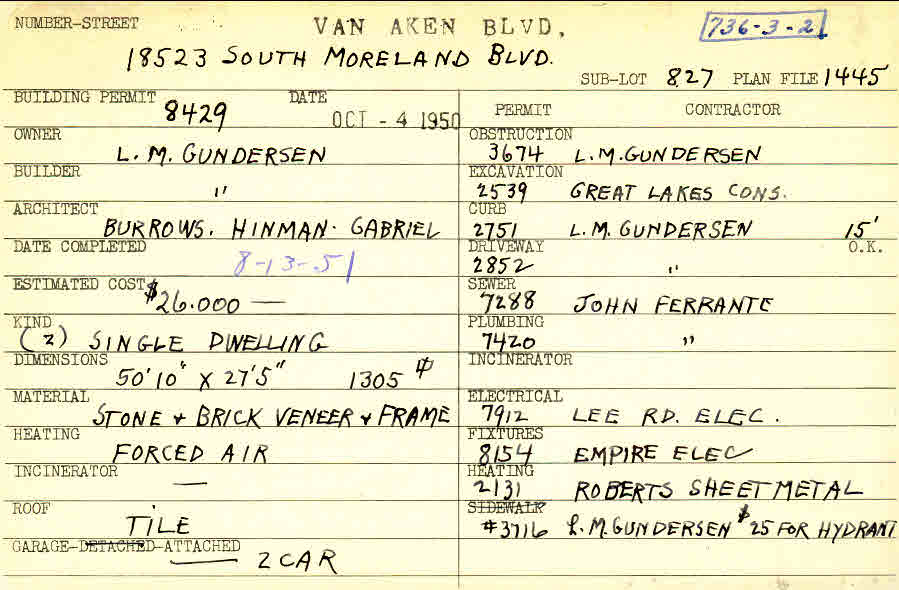 NUMBER-STREET VAN AKEN BLVD. 736-3-2
18523 SOUTH MORELAND BLVD.
SUB-LOT 827 PLAN FILE 1445
BUILDING PERMIT 8429 DATE OCT - 4 1950
OWNER L. M. GUNDERSEN
BUILDER "
ARCHITECT BURROWS. HINMAN. GABRIEL
DATE COMPLETED 8-13-51
ESTIMATED COST $26.000 —
KIND (2) SINGLE DWELLING
DIMENSIONS 50'10" X 27'5" 1305 #
MATERIAL STONE + BRICK VENEER + FRAME
HEATING FORCED AIR
INCINERATOR —
ROOF TILE
GARAGE-DETACHED-ATTACHED — 2 CAR
PERMIT CONTRACTOR
OBSTRUCTION 3674 L.M.GUNDERSEN
EXCAVATION 2539 GREAT LAKES CONS.
CURB 2751 L.M. GUNDERSEN 15'
DRIVEWAY 2852 " O.K.
SEWER 7288 JOHN FERRANTE
PLUMBING 7420 "
INCINERATOR
ELECTRICAL 7912 LEE RD. ELEC.
FIXTURES 8154 EMPIRE ELEC
HEATING 2131 ROBERTS SHEET METAL
SIDEWALK #3716 L.M.GUNDERSEN $25 FOR HYDRANT